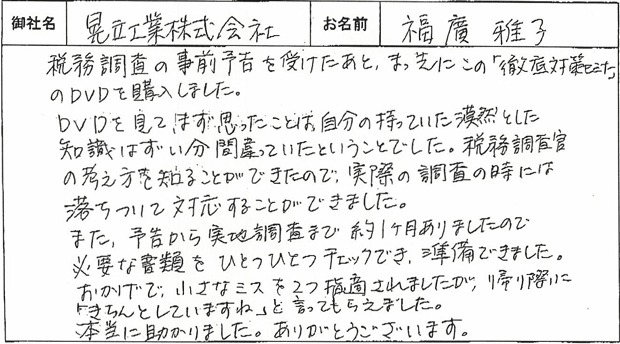 御社名 晃立工業株式会社 お名前 福廣 雅子
税務調査の事前予告を受けたあと、まっ先にこの「徹底対策セミナー」
のDVDを購入しました。
DVDを見てまず思ったことは自分の持っていた漠然とした
知識はずい分間違っていたということでした。税務調査官
の考え方を知ることができたので、実際の調査の時には
落ちついて対応することができました。
また、予告から実地調査まで約1ヶ月ありましたので
必要な書類をひとつひとつチェックでき、準備できました。
おかげで、小さなミスを2つ指摘されましたが、帰り際に
「きちんとしていますね」と言ってもらえました。
本当に助かりました。ありがとうございます。